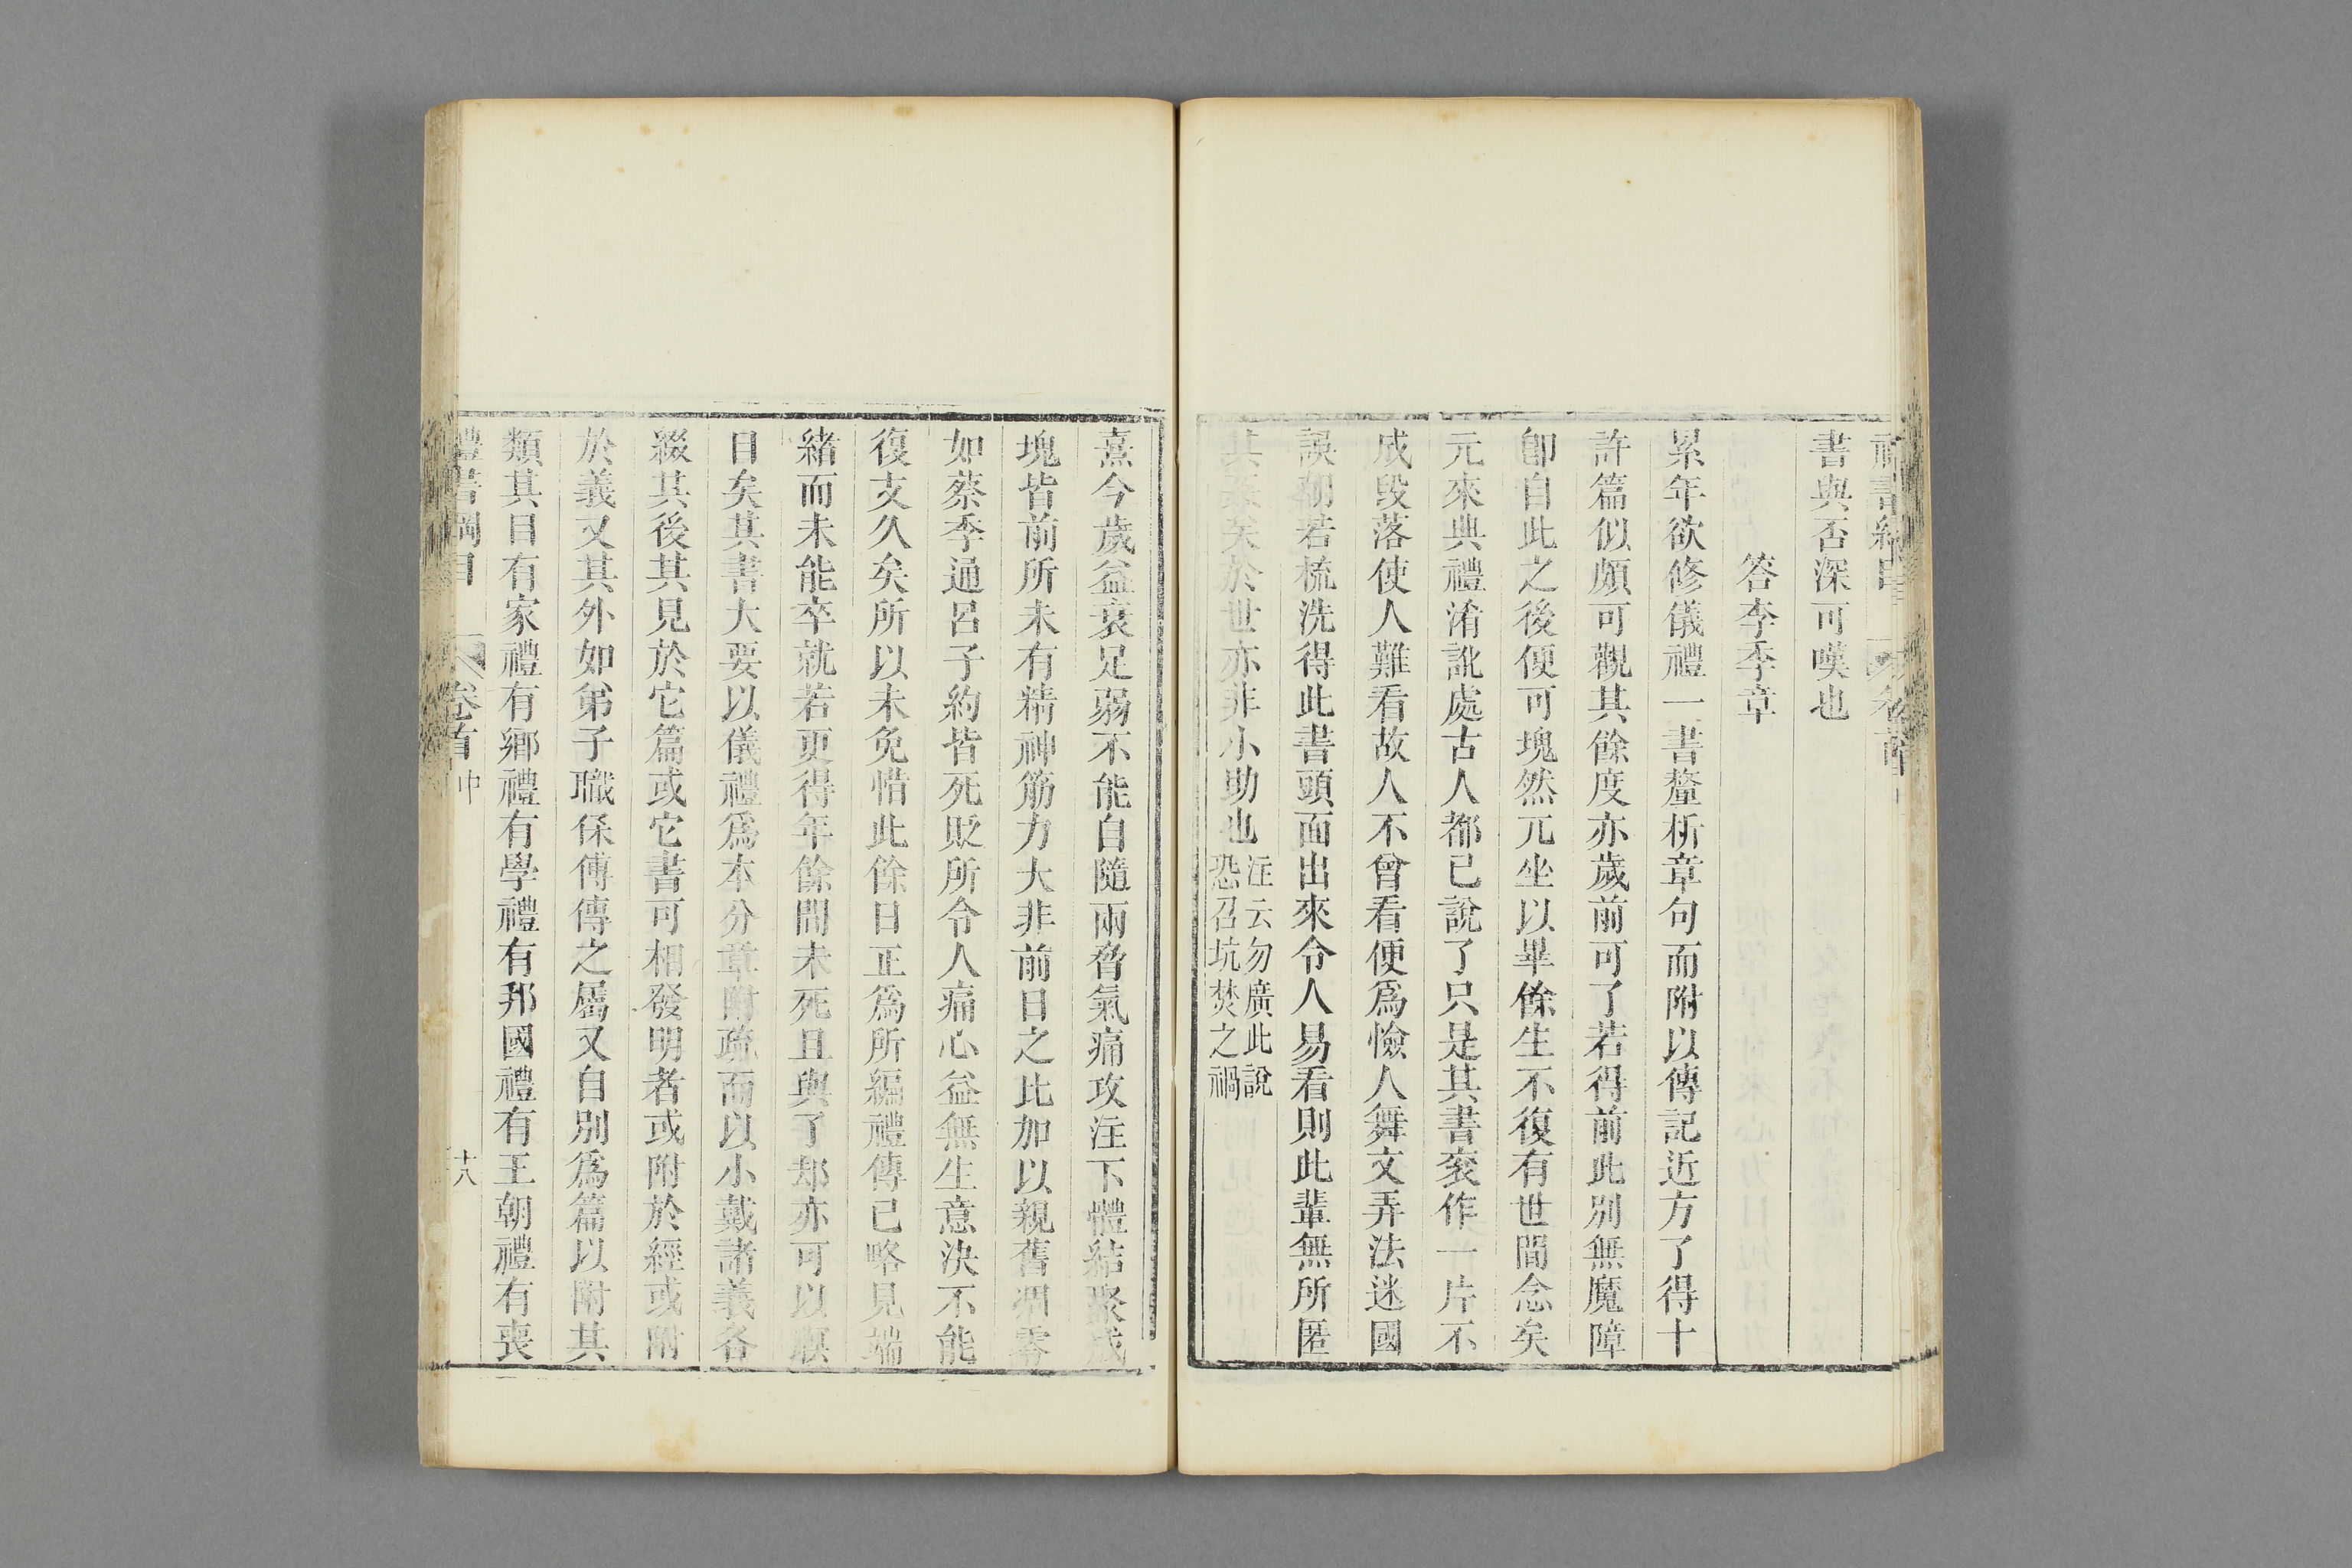 禮書綱目 卷首
書與否深可嘆也
答李季章
累年欲修儀禮一書釐析章句而附以傳記近方了得十
許篇似頗可觀其餘度亦歲前可了若得前此別無魔障
卽自此之後便可塊然兀坐以畢餘生不復有世間念矣
元來典禮淆訛處古人都已說了只是其書袞作一片不
成段落使人難看故人不曾看便爲憸人舞文弄法迷國
誤朝若梳洗得此書頭面出來令人易看則此輩無所匿
其姦矣於世亦非小助也
注云勿廣此說
恐召坑焚之禍
熹今歲益衰足弱不能自隨兩脅氣痛攻注下體結聚成
塊皆前所未有精神筋力大非前日之比加以親舊凋零
如蔡季通呂子約皆死貶所令人痛心益無生意決不能
復支久矣所以未免惜此餘日正爲所編禮傳已略見端
緒而未能卒就若更得年餘間未死且與了却亦可以瞑
目矣其書大要以儀禮爲本分章附疏而以小戴諸義各
綴其後其見於它篇或它書可相發明者或附於經或附
於義又其外如弟子職保傅傳之屬又自別爲篇以附其
類其目有家禮有鄉禮有學禮有邦國禮有王朝禮有喪
禮書綱目 卷首中 十八